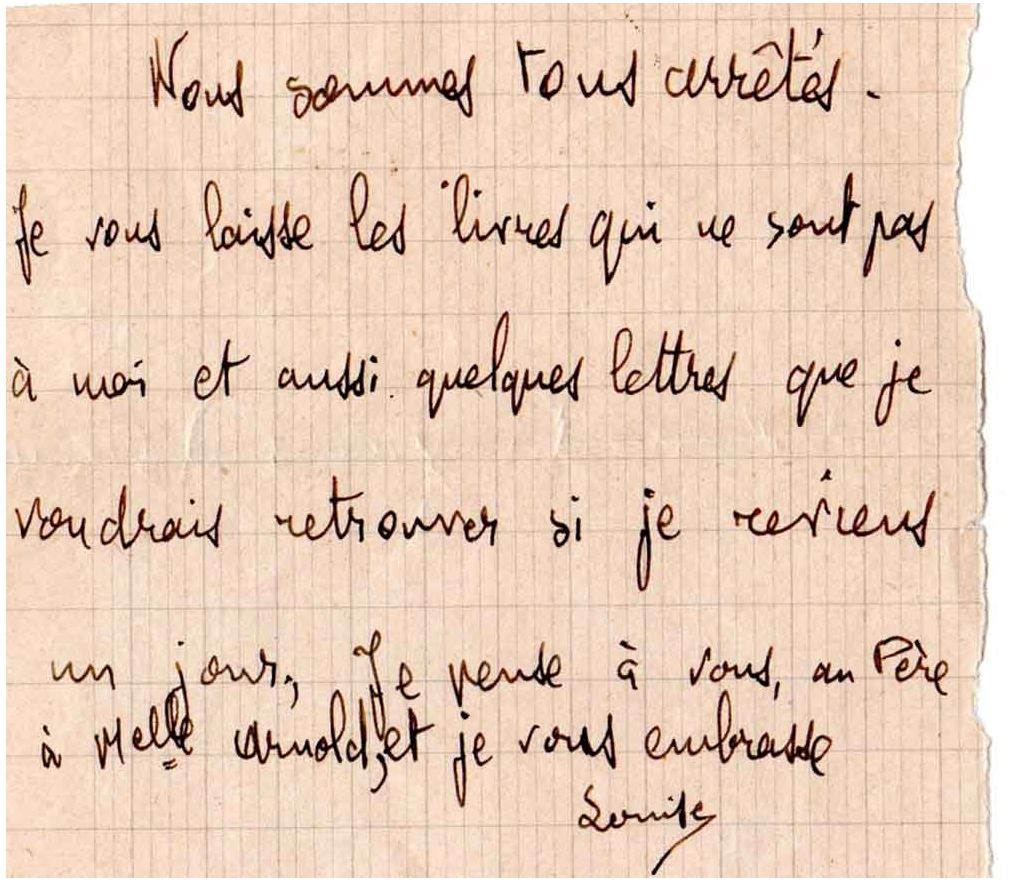 Nous sommes tous arrêtés.
Je vous laisse les livres qui ne sont pas
à moi et aussi quelques lettres que je
voudrais retrouver si je reviens
un jour. Je pense à vous, au Père
à Melle Arnold, et je vous embrasse
Louise